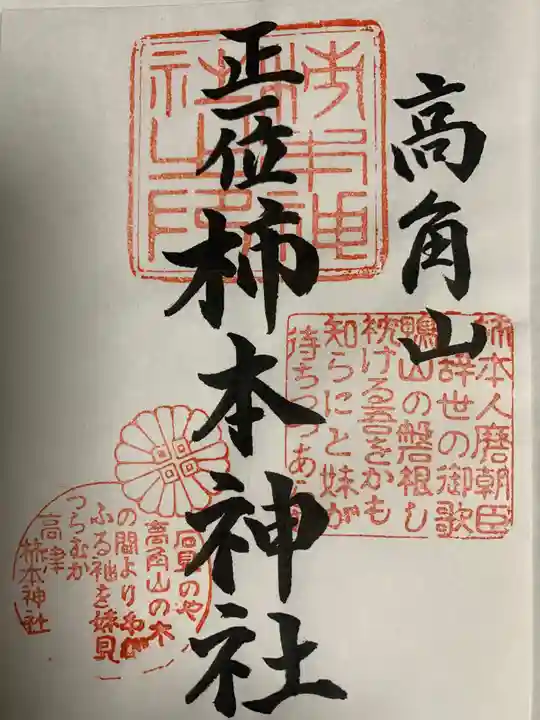 高角山
正一位柿本神社
柿本神
社之印
柿本人麿朝臣
辞世の御歌
鴨山の磐根し
枕ける吾をかも
知らにと妹が
待ちつつあ
石見のや
高角山の木
の間よりわが
ふる袖を妹見
つらむか
高津
柿本神社